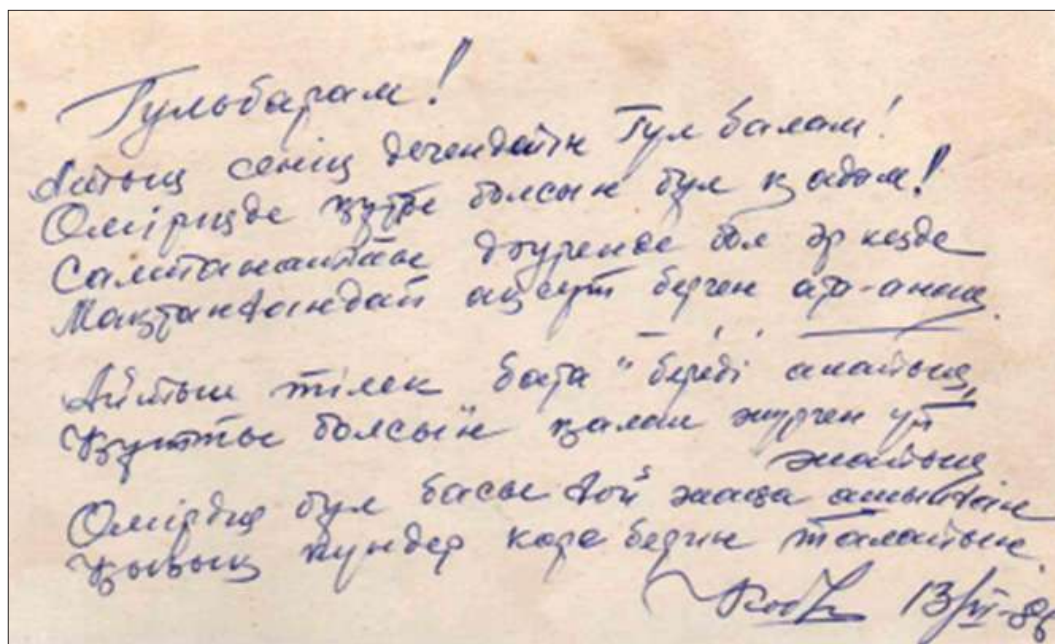 Гульбарам!
Айтың сенің дегендейін Гүл балам!
Өміріңде құтты болсын бұл қадам!
Салтанатты дәурен бол әр кезде
Мақтанғандай ақ сүт берген ата-анаң.
Айтып тілек бата береді апайың,
Құтты болсын" қалап жүрген үй
жайың
Өмірдің бұл басы ғой жаңа ашылған
Қызық күндер көре бергин талайын.
13/VI-86